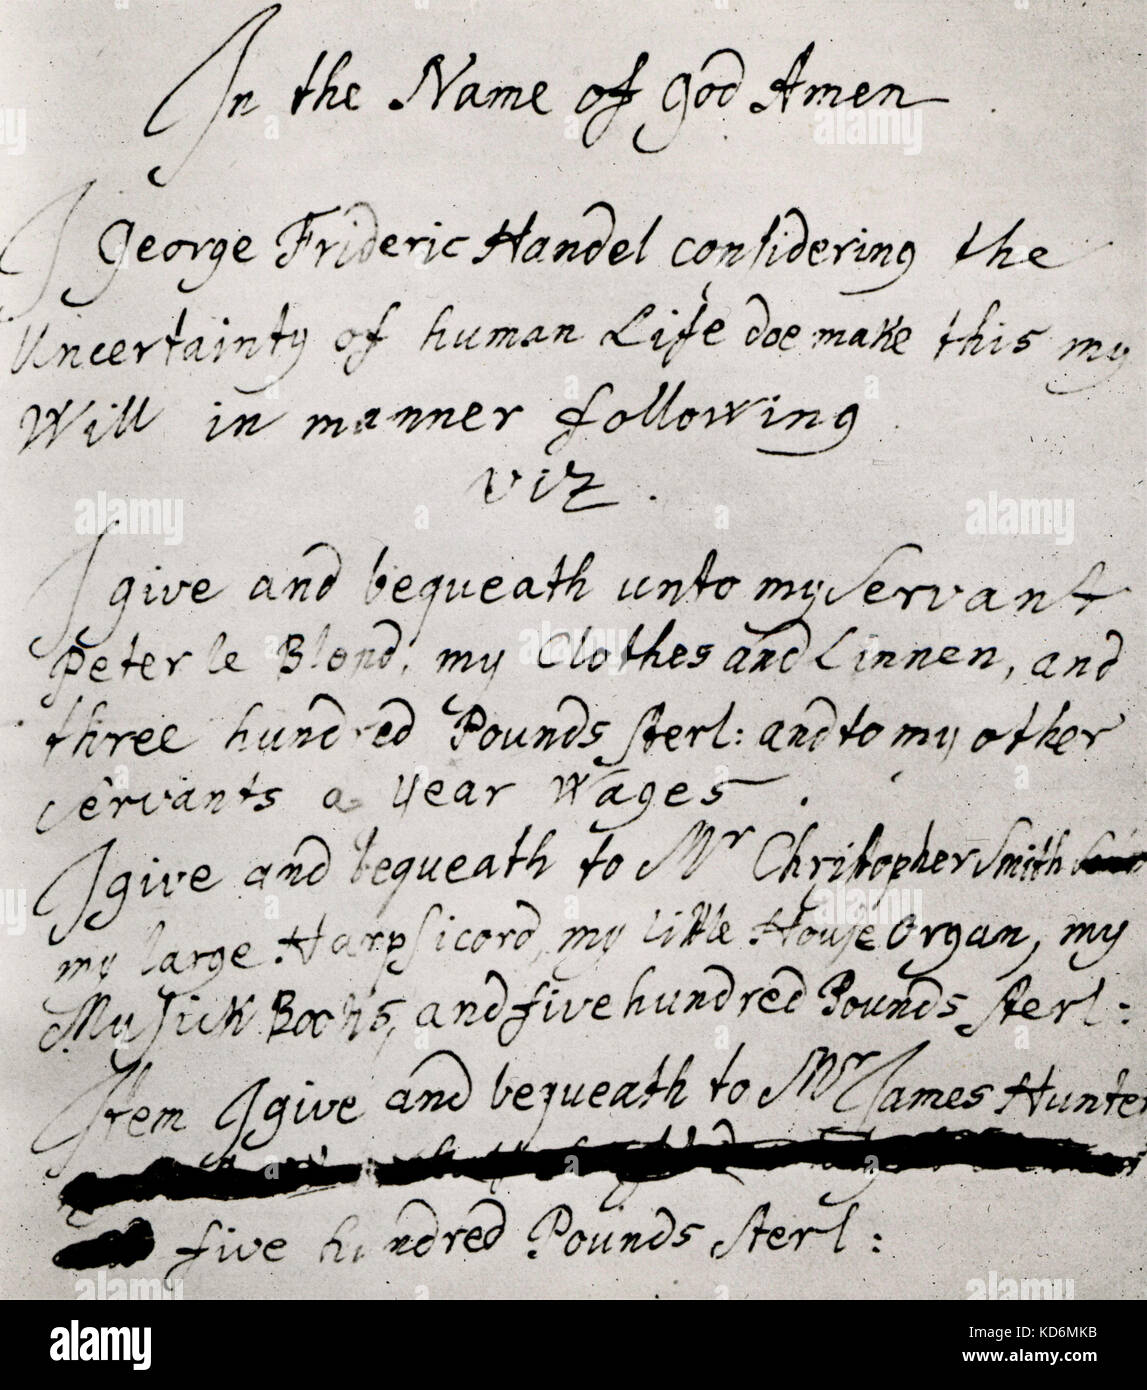 In the Name of God Amen
I George Frideric Handel considering the
Uncertainty of human Life doe make this my
Will in manner following
viz.
I give and bequeath unto my Servant
Peter le Blond, my Clothes and Linnen, and
three hundred Pounds Sterl: and to my other
servants a year Wages.
I give and bequeath to Mr Christopher Smith
my large Harpsicord, my little House Organ, my
Musick Books, and five hundred Pounds Sterl:
Item I give and bequeath to Mr James Hunter
five hundred Pounds Sterl:
alamy
Image ID: KD6MKB
www.alamy.com